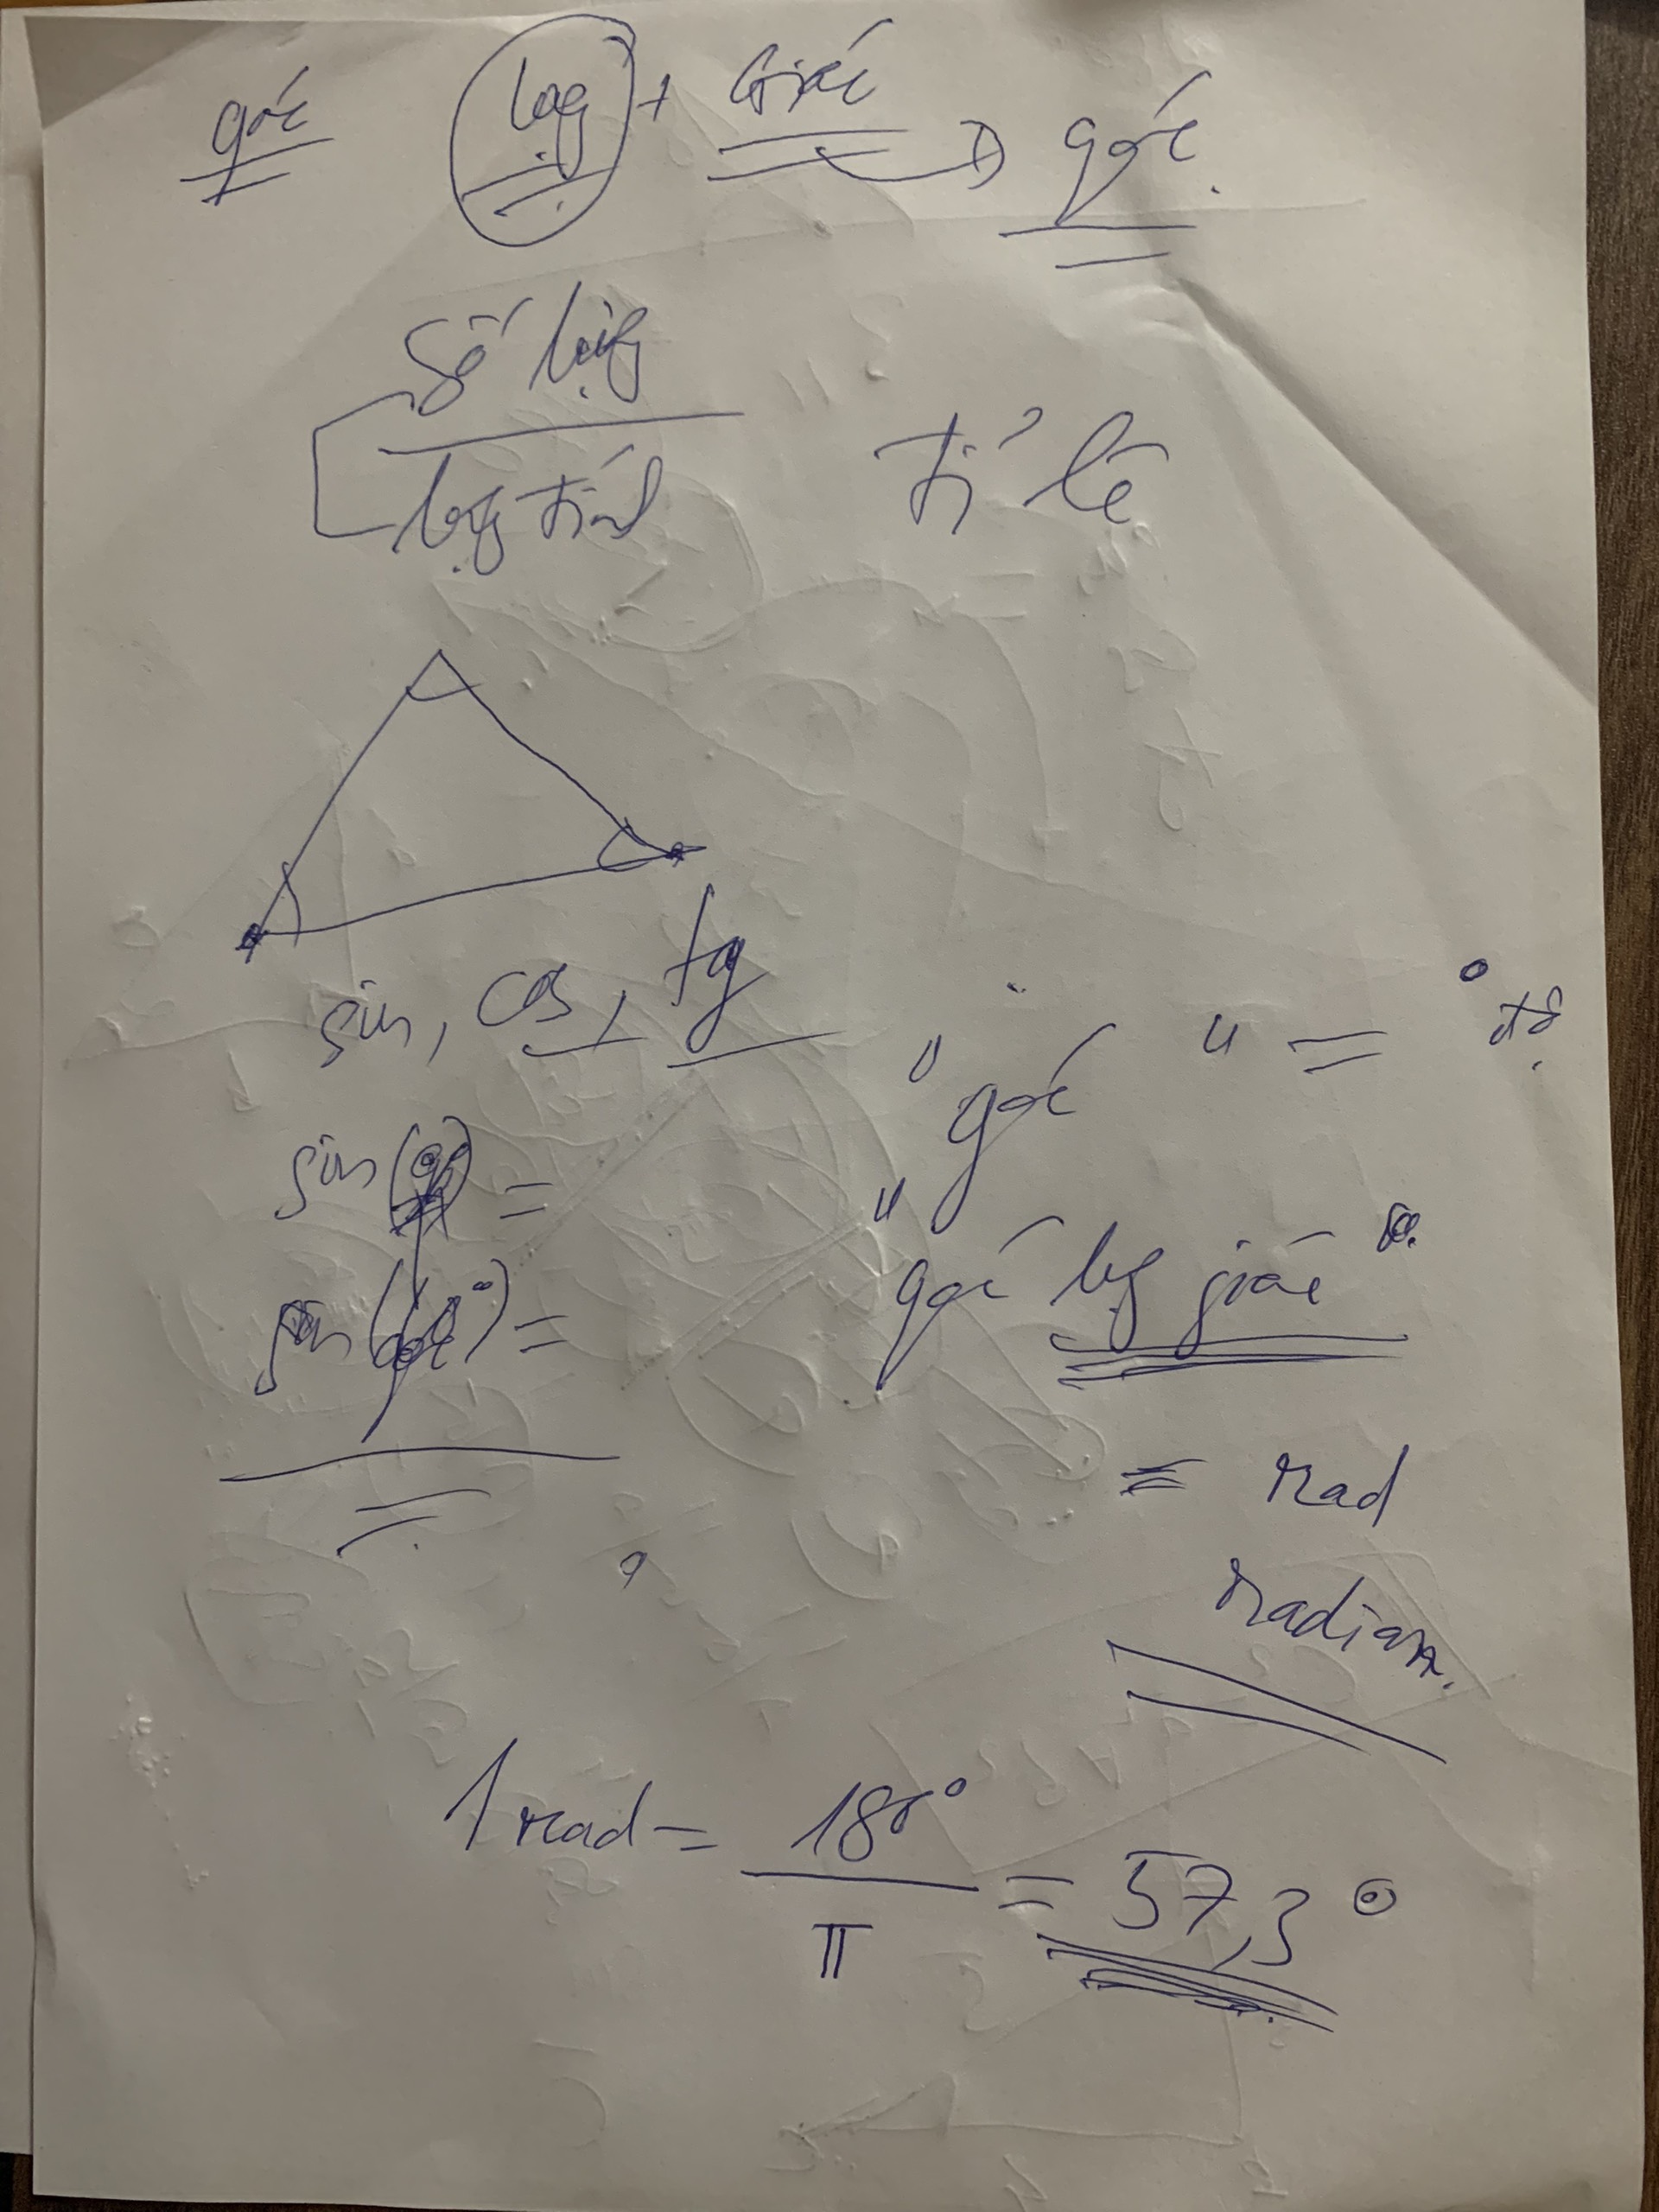 góc lượng + Giác → góc.
Số lượng
lượng tính
tỉ lệ
sin, cos, tg
"góc" = ° độ.
sin( ) =
sin( °) =
"góc lượng giác"
= rad
radian.
1 rad = 180° / π = 57,3°